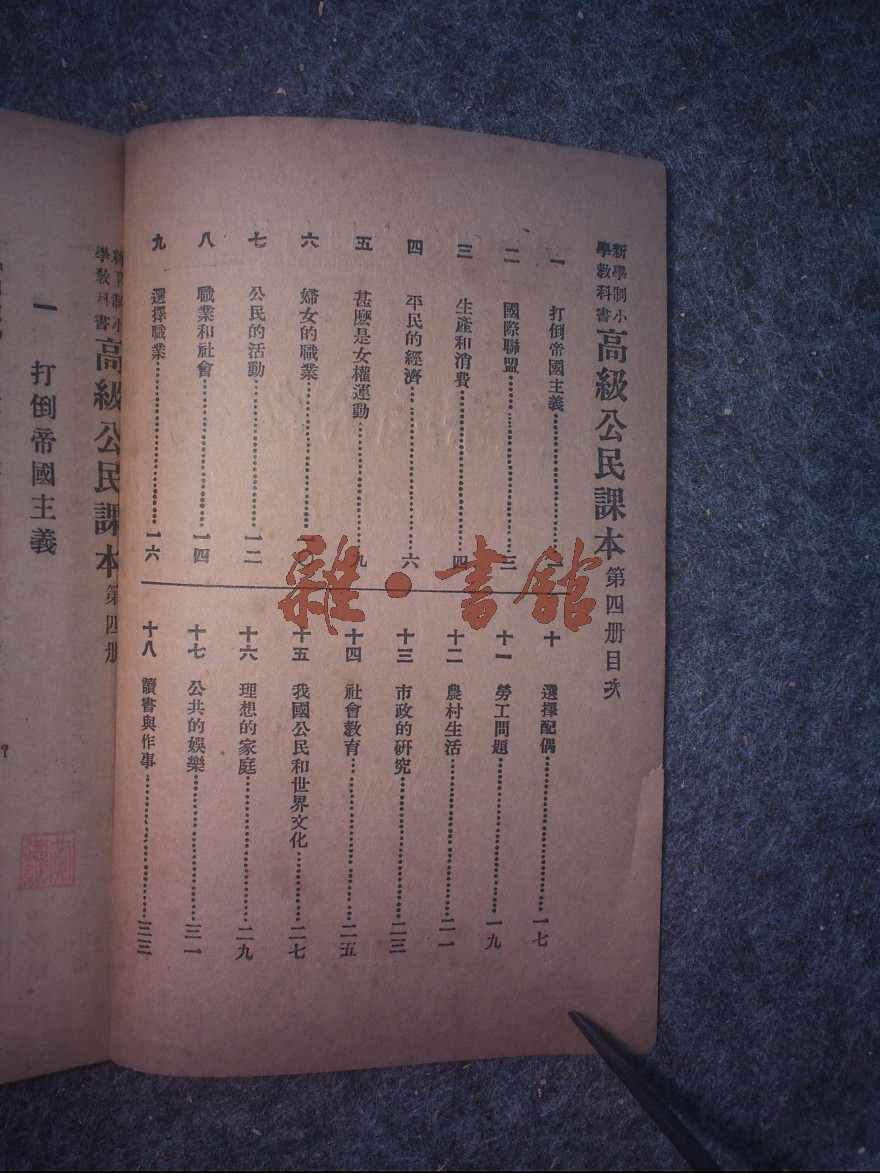 新學制小
學教科書
高級公民課本第四册目次
一 打倒帝國主義 一
二 國際聯盟 三
三 生產和消費 四
四 平民的經濟 六
五 甚麽是女權運動 九
六 婦女的職業 一〇
七 公民的活動 一二
八 職業和社會 一四
九 選擇職業 一六
十 選擇配偶 一七
十一 勞工問題 一九
十二 農村生活 二一
十三 市政的研究 二三
十四 社會教育 二五
十五 我國公民和世界文化 二七
十六 理想的家庭 二九
十七 公共的娛樂 三一
十八 讀書與作事 三三
雜·書館
學教科書
高級公民課本第四册
一 打倒帝國主義